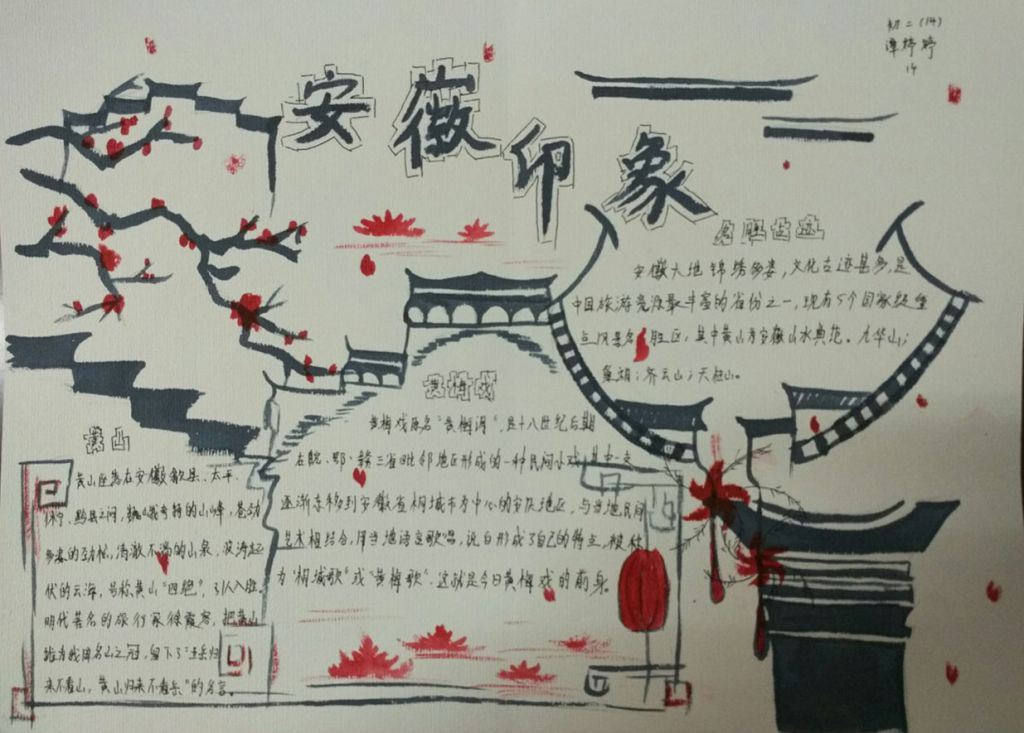 初二(14)
谭婷婷
14
安徽印象
名胜古迹
安徽大地锦绣多姿，文化古迹甚多，是
中国旅游资源最丰富的省份之一，现有5个国家级重
点风景名胜区，其中黄山为安徽山水典范。九华山；
巢湖；齐云山；天柱山。
黄梅戏
黄梅戏原名"黄梅调"，是十八世纪后期
在皖、鄂、赣三省毗邻地区形成的一种民间小戏，其中一支
逐渐东移到安徽省桐城市为中心的安庆地区，与当地民间
艺术相结合，用当地语言歌唱，说白形成了自己的特点，被称
为"桐城歌"或"黄梅歌"。这就是今日黄梅戏的前身。
黄山
黄山座落在安徽歙县、太平、
休宁、黟县之间，巍峨奇特的山峰，苍劲
多姿的劲松，清澈不竭的山泉，波涛起
伏的云海，号称黄山"四绝"，引人入胜。
明代著名的旅行家徐霞客，把黄山
推为我国名山之冠，留下了"五岳归
来不看山，黄山归来不看岳"的名言。